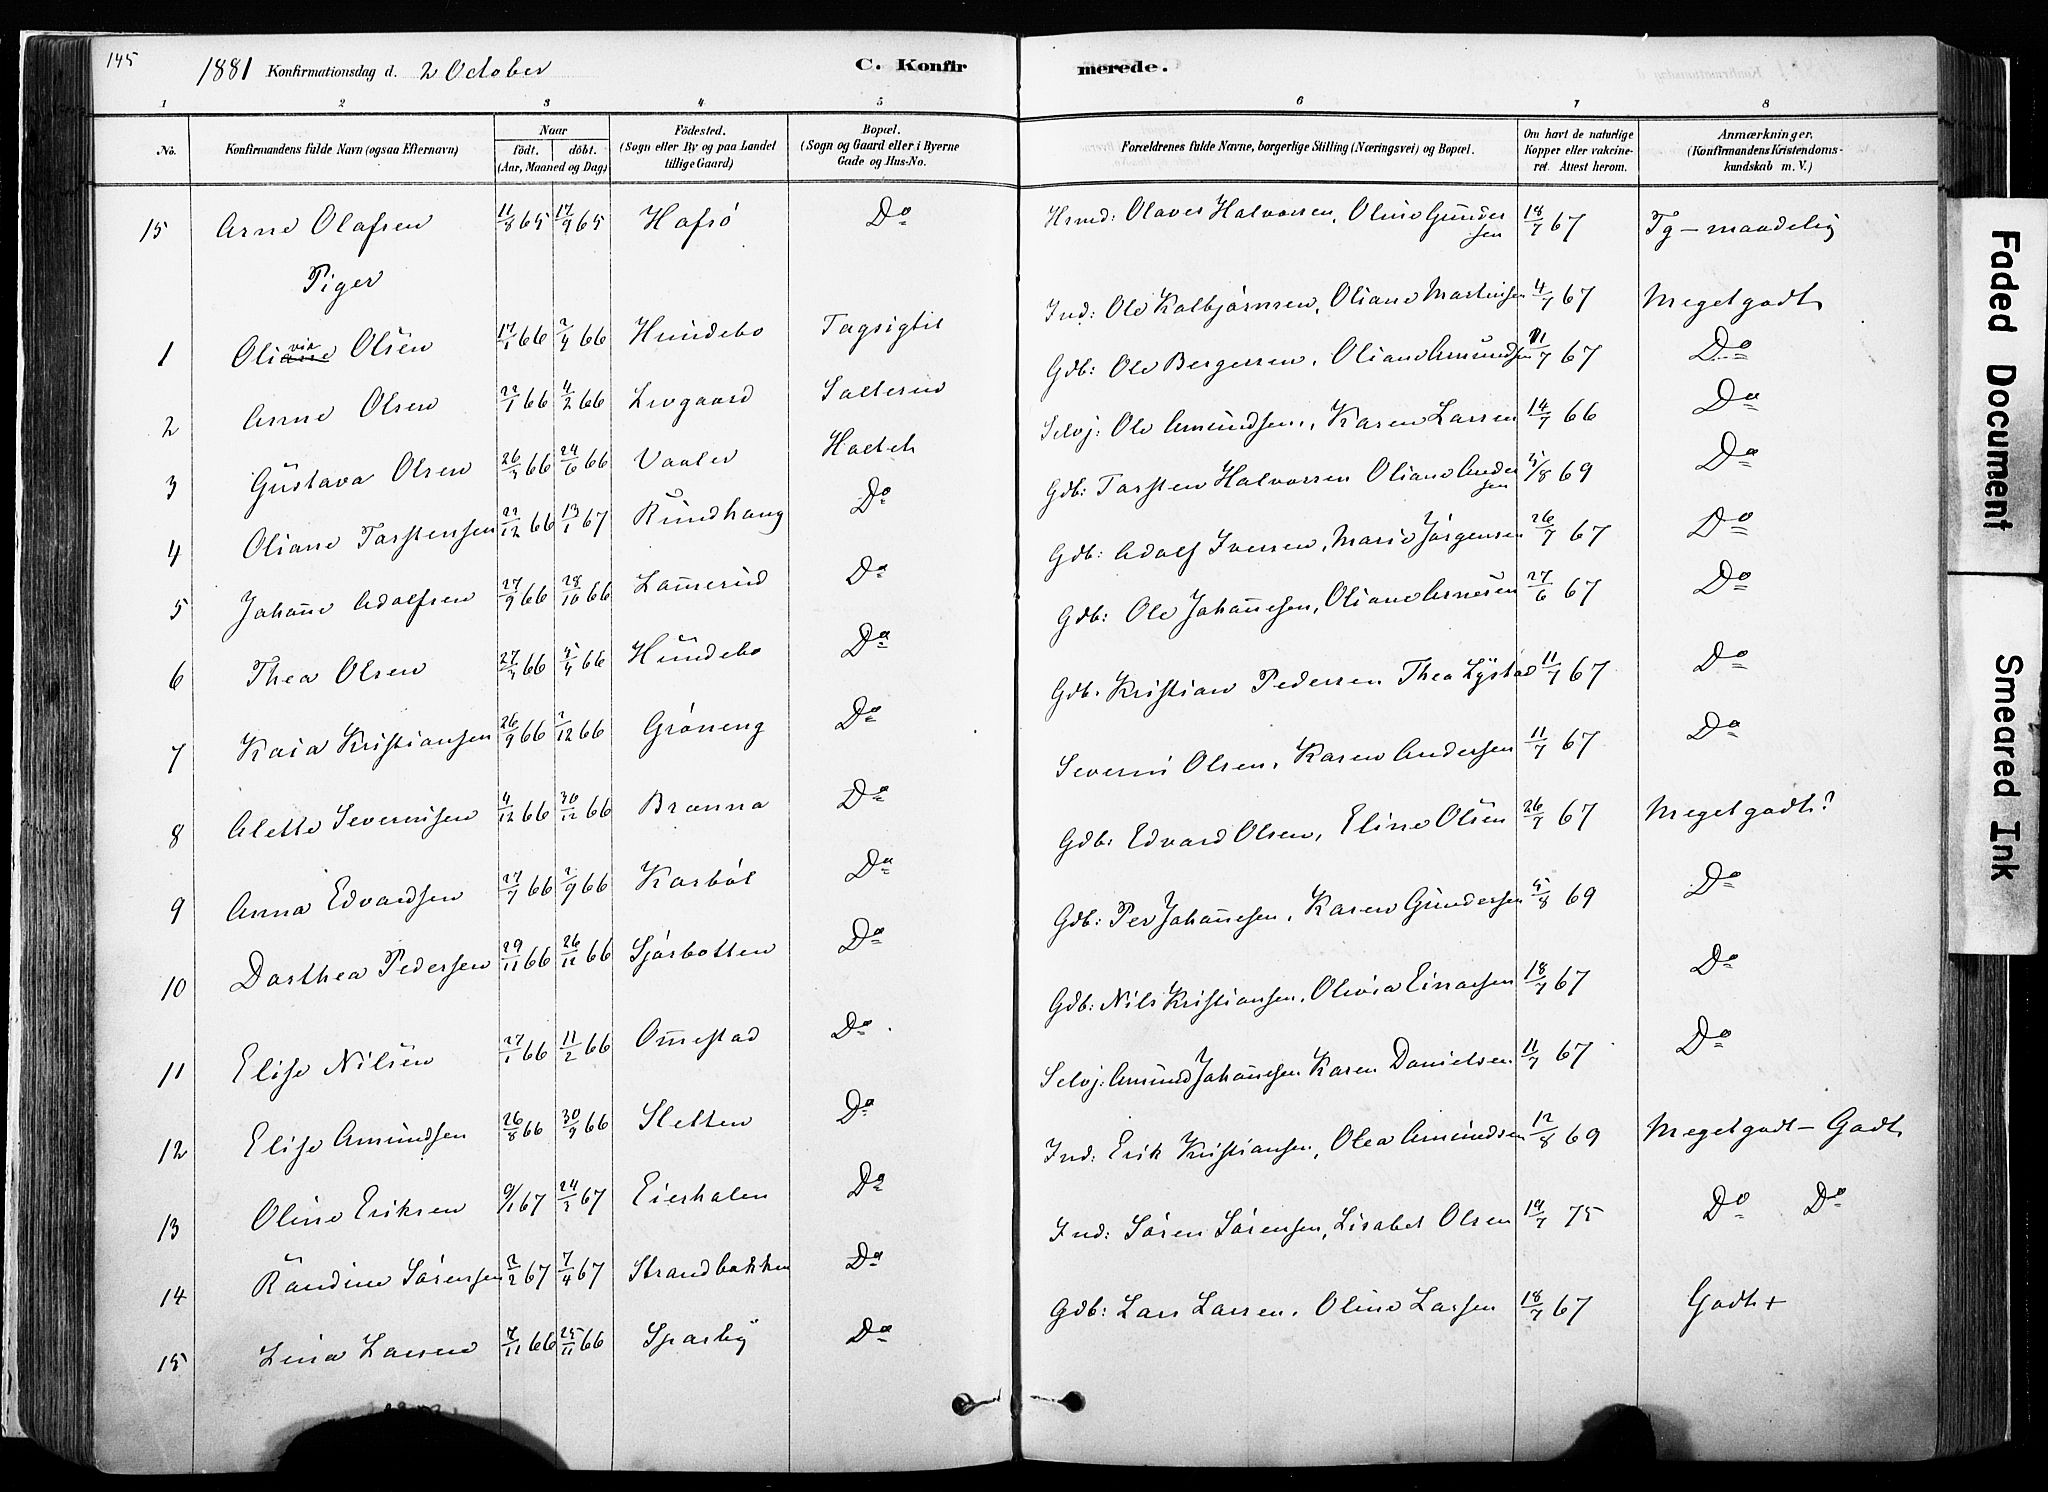 145
1881 Konfirmationsdag d. 2 October
C. Konfirmerede.
1 2 3 4 5 6 7 8
No.
Konfirmandens fulde Navn (ogsaa Efternavn)
Naar
födt. döbt.
(Aar, Maaned og Dag)
Födested.
(Sogn eller By og paa Landet
tillige Gaard)
Bopæl.
(Sogn og Gaard eller i Byerne
Gade og Hus-No.
Forældrenes fulde Navne, borgerlige Stilling (Næringsvei) og Bopæl.
Om havt de naturlige
Kopper eller vakcine-
ret. Attest herom.
Anmærkninger.
(Konfirmandens Kristendoms-
kundskab m. V.)
15 Arne Olafsen 11/8 65 17/9 65 Hafsö Do Hsmd: Olaves Halvorsen, Oline Gunder
sen 18/7 67 Tg – maadelig
Piger
1 Olivia Olsen 17/1 66 2/4 66 Hundebo Tagsigtil Ind: Ole Kolbjörnsen, Oliane Martinsen 4/7 67 Meget godt
2 Anne Olsen 22/1 66 4/2 66 Levgaard Salterud Gdb: Ole Bergersen, Oliane Amundsen 11/7 67 Do
3 Gustava Olsen 26/3 66 24/6 66 Vaaler Selvj: Ole Amundsen, Karen Larsen 14/7 66 Do
4 Oliane Torstensen 22/12 66 13/1 67 Rundhaug Do Gdb: Torsten Halvorsen Oliane Ander
sen 5/8 69 Do
5 Johanne Adolfsen 27/9 66 28/10 66 Lamerud Do Gdb: Adolf Iversen, Marie Jörgensen 26/7 67 Do
6 Thea Olsen 27/3 66 5/4 66 Hundebo Do Gdb: Ole Johannesen, Oliane Arnesen 27/6 67 Do
7 Kaia Kristiansen 26/9 66 2/12 66 Gröneng Do Gdb. Kristian Pedersen Thea Lystad 11/7 67 Do
8 Alette Severinsen 4/12 66 30/12 66 Branna Do Severin Olsen, Karen Andersen 11/7 67 Do
9 Anna Edvardsen 27/7 66 2/9 66 Korböl Do Gdb: Edvard Olsen, Eline Olsen 26/7 67 Meget godt?
10 Dorthea Pedersen 29/11 66 26/12 66 Sjörbotten Do Gdb: Per Johannesen, Karen Gundersen 5/8 69 Do
11 Elise Nilsen 27/1 66 11/2 66 Ommestad Do Gdb: Nils Kristiansen, Olivia Einarsen 18/7 67 Do
12 Elise Amundsen 26/8 66 30/9 66 Sletten Do Selvj: Amund Johannesen Karen Danielsen 11/7 67 Do
13 Oline Eriksen 9/1 67 24/2 67 Eierhalen Do Ind: Erik Kristiansen, Olea Amundsen 12/8 69 Meget godt – Godt
14 Randine Sörensen 2/2 67 7/4 67 Strandbakken Do Ind: Sören Sörensen, Lisabet Olsen 19/7 75 Do Do
15 Lina Larsen 7/11 66 25/11 66 Sparby Do Gdb: Lars Larsen, Oline Larsen 18/7 67 Godt +
Faded Document
Smeared Ink